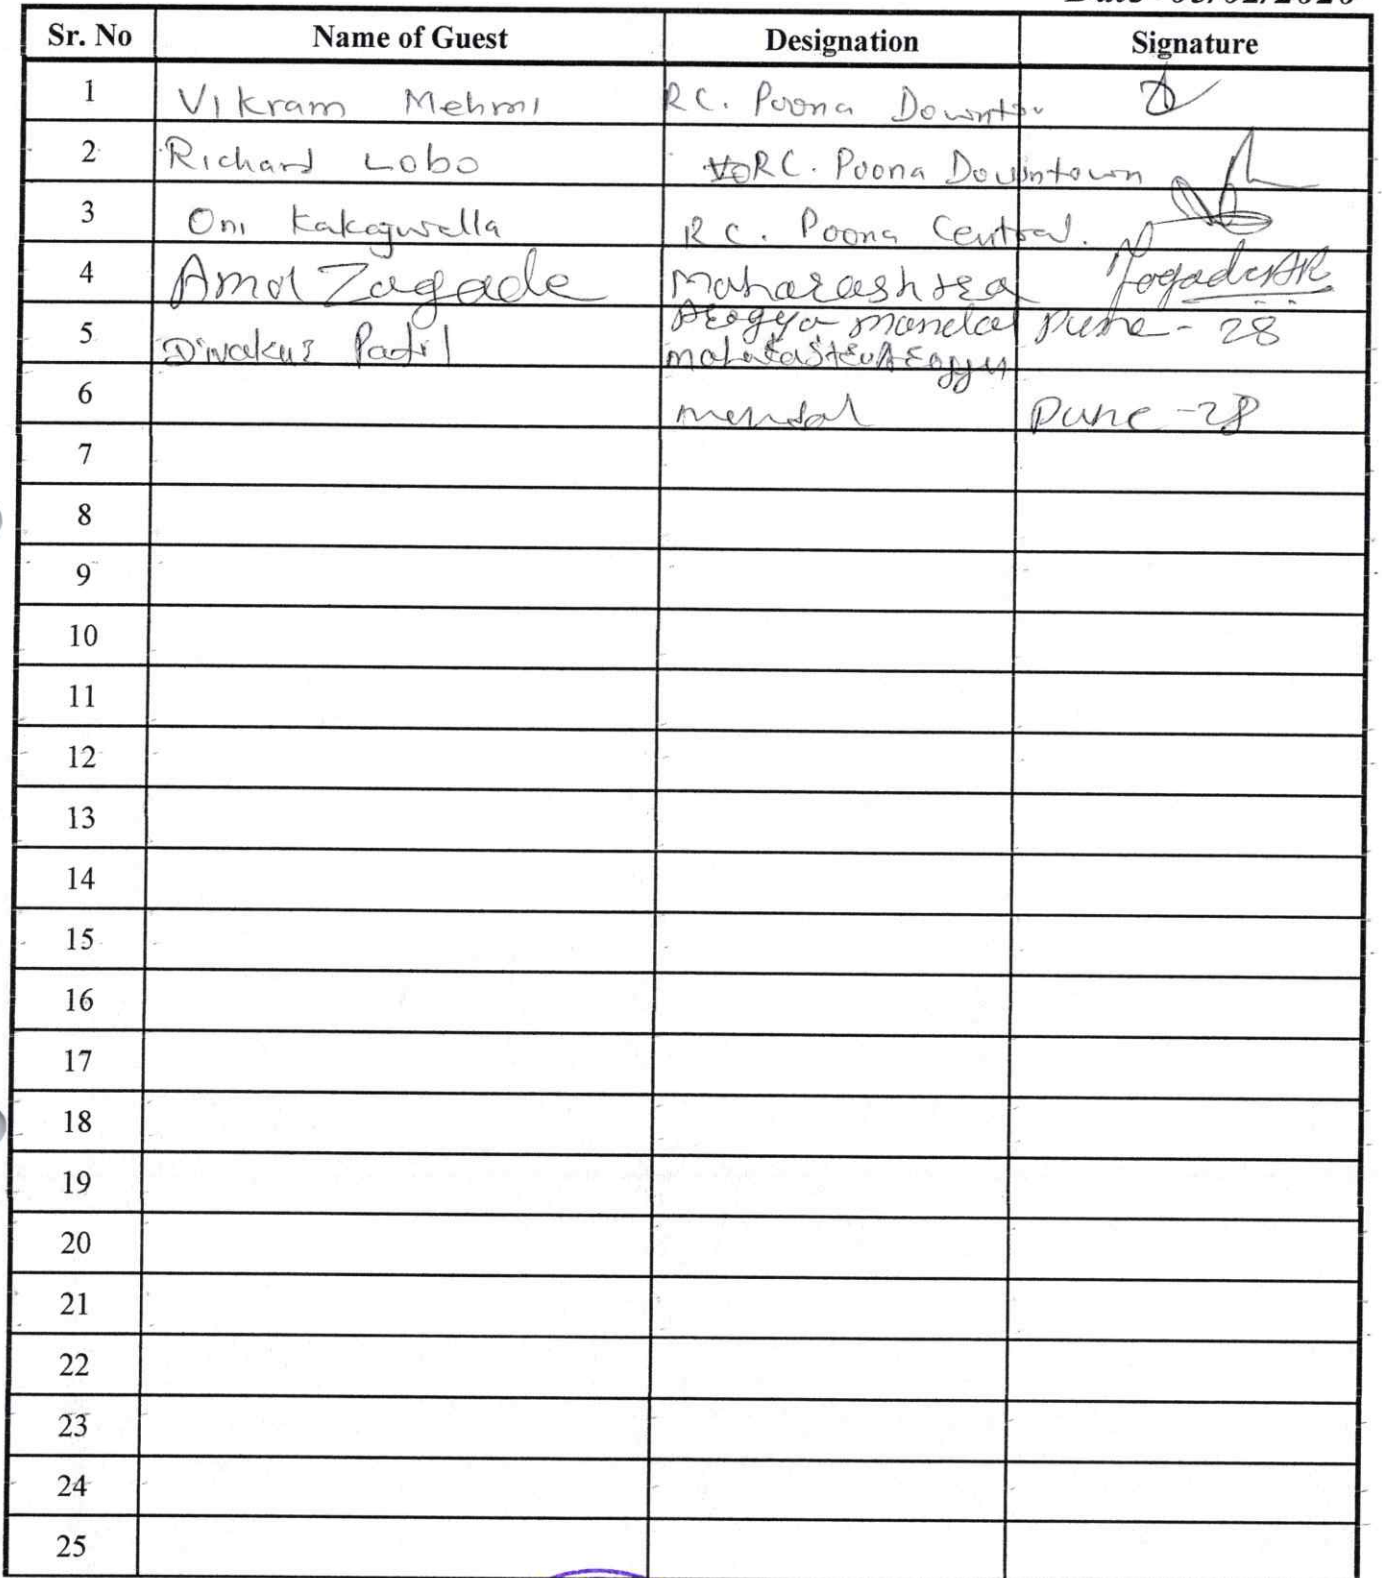 Sr. No Name of Guest Designation Signature
1 Vikram Mehmi R C. Poona Downtow
2 Richard Lobo RC. Poona Downtown
3 Oni R C. Poona Central.
4 Amol Zagade Maharashtra ZagadeAR
Arogya mandal Pune - 28
5 Divakar Patil
6 mendal Pune - 28
7
8
9
10
11
12
13
14
15
16
17
18
19
20
21
22
23
24
25